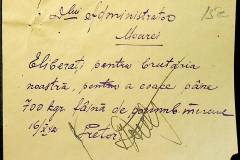 Dlui Administrator
Moarei
Eliberați, pentru brutăria
noastră, pentru a coape pâne
700 kgr. făină de porumb
16/X/42
Pretor